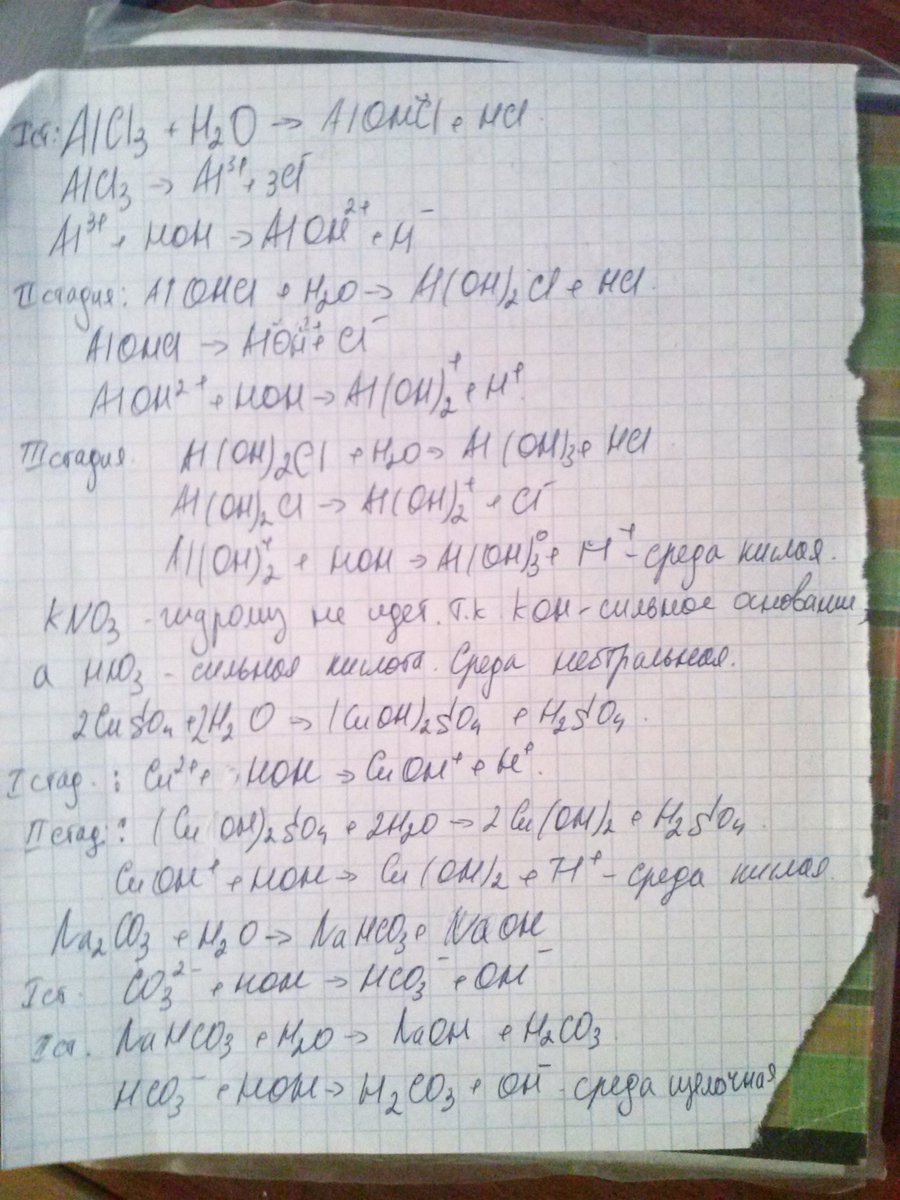 I ст: AlCl3 + H2O → AlOHCl + HCl.
AlCl3 → Al³⁺ + 3Cl⁻
Al³⁺ + HOH → AlOH²⁺ + H⁻
II стадия: AlOHCl + H2O → Al(OH)2Cl + HCl.
AlOHCl → AlOH²⁺ + Cl⁻
AlOH²⁺ + HOH → Al(OH)2⁺ + H⁺.
III стадия. Al(OH)2Cl + H2O → Al(OH)3 + HCl
Al(OH)2Cl → Al(OH)2⁺ + Cl⁻
Al(OH)2⁺ + HOH → Al(OH)3⁰ + H⁺ - среда кислая.
KNO3 - гидролиз не идет. т.к KOH - сильное основание,
а HNO3 - сильная кислота. Среда нейтральная.
2CuSO4 + 2H2O → (CuOH)2SO4 + H2SO4.
I стад. : Cu²⁺ + HOH → CuOH⁺ + H⁺.
II стад: (CuOH)2SO4 + 2H2O → 2Cu(OH)2 + H2SO4.
CuOH⁺ + HOH → Cu(OH)2 + H⁺ - среда кислая.
Na2CO3 + H2O → NaHCO3 + NaOH
I ст. CO3²⁻ + HOH → HCO3⁻ + OH⁻
II ст. NaHCO3 + H2O → NaOH + H2CO3.
HCO3⁻ + HOH → H2CO3 + OH⁻ - среда щелочная